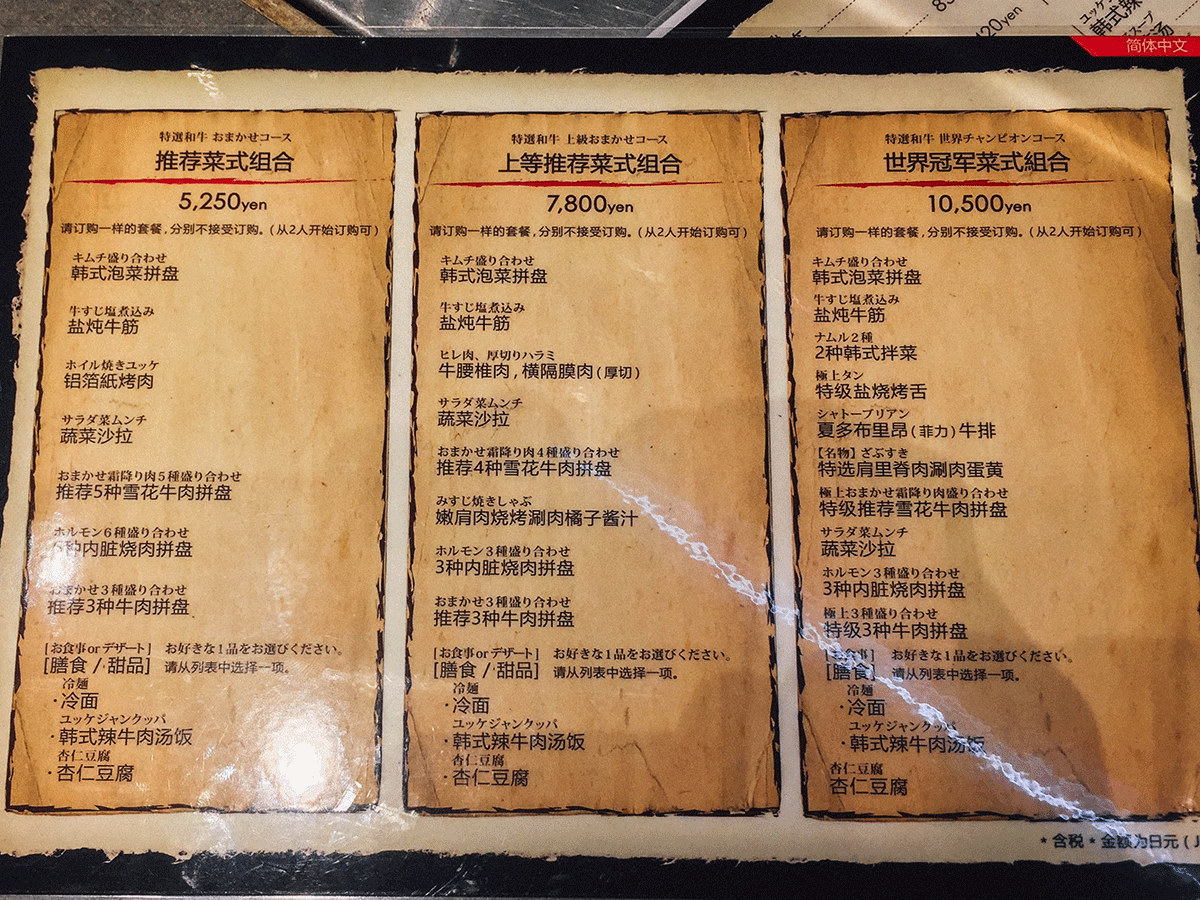 85
420yen
ユッケ
韩式辣
スープ
汤
简体中文
特選和牛 おまかせコース
推荐菜式组合
5,250yen
请订购一样的套餐,分别不接受订购。(从2人开始订购可)
キムチ盛り合わせ
韩式泡菜拼盘
牛すじ塩煮込み
盐炖牛筋
ホイル焼きユッケ
铝箔紙烤肉
サラダ菜ムンチ
蔬菜沙拉
おまかせ霜降り肉5種盛り合わせ
推荐5种雪花牛肉拼盘
ホルモン6種盛り合わせ
6种内脏烧肉拼盘
おまかせ3種盛り合わせ
推荐3种牛肉拼盘
[お食事orデザート] お好きな1品をお選びください。
[膳食 / 甜品] 请从列表中选择一项。
冷麺
·冷面
ユッケジャンクッパ
·韩式辣牛肉汤饭
杏仁豆腐
·杏仁豆腐
特選和牛 上級おまかせコース
上等推荐菜式组合
7,800yen
请订购一样的套餐,分别不接受订购。(从2人开始订购可)
キムチ盛り合わせ
韩式泡菜拼盘
牛すじ塩煮込み
盐炖牛筋
ヒレ肉、厚切りハラミ
牛腰椎肉,横隔膜肉(厚切)
サラダ菜ムンチ
蔬菜沙拉
おまかせ霜降り肉4種盛り合わせ
推荐4种雪花牛肉拼盘
みすじ焼きしゃぶ
嫩肩肉烧烤涮肉橘子酱汁
ホルモン3種盛り合わせ
3种内脏烧肉拼盘
おまかせ3種盛り合わせ
推荐3种牛肉拼盘
[お食事orデザート] お好きな1品をお選びください。
[膳食 / 甜品] 请从列表中选择一项。
冷麺
·冷面
ユッケジャンクッパ
·韩式辣牛肉汤饭
杏仁豆腐
·杏仁豆腐
特選和牛 世界チャンピオンコース
世界冠军菜式組合
10,500yen
请订购一样的套餐,分别不接受订购。(从2人开始订购可)
キムチ盛り合わせ
韩式泡菜拼盘
牛すじ塩煮込み
盐炖牛筋
ナムル2種
2种韩式拌菜
極上タン
特级盐烧烤舌
シャトーブリアン
夏多布里昂(菲力)牛排
【名物】ざぶすき
特选肩里脊肉涮肉蛋黄
極上おまかせ霜降り肉盛り合わせ
特级推荐雪花牛肉拼盘
サラダ菜ムンチ
蔬菜沙拉
ホルモン3種盛り合わせ
3种内脏烧肉拼盘
極上3種盛り合わせ
特级3种牛肉拼盘
[お食事] お好きな1品をお選びください。
[膳食] 请从列表中选择一项。
冷麺
·冷面
ユッケジャンクッパ
·韩式辣牛肉汤饭
杏仁豆腐
·杏仁豆腐
* 含税 * 金额为日元 (J